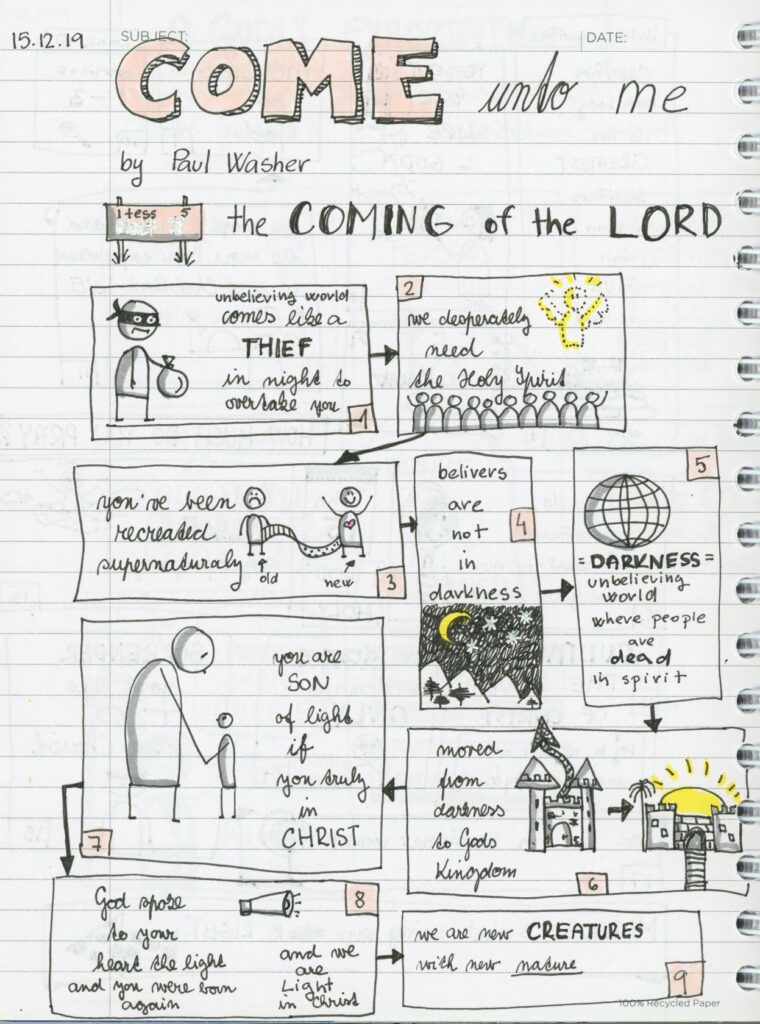 15.12.19
SUBJECT:
DATE:
COME unto me
by Paul Washer
1 tess 5
the COMING of the LORD
unbelieving world
comes like a
THIEF
in night to
overtake you
1
2
we desperately
need
the Holy Spirit
you've been
recreated
supernaturaly
old
new
3
belivers
are
not
in
darkness
4
5
= DARKNESS =
unbelieving
world
where people
are
dead
in spirit
moved
from
darkness
to Gods
Kingdom
6
you are
SON
of light
if
you truly
in
CHRIST
7
God spoke
to your
heart the light
and you were born
again
8
and we
are
Light
in Christ
we are new CREATURES
with new nature
9
100% Recycled Paper